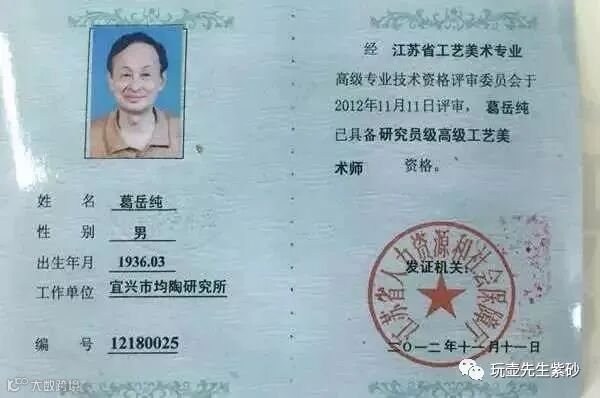 姓名 葛岳纯
性别 男
出生年月 1936.03
工作单位 宜兴市均陶研究所
编号 12180025
经 江苏省工艺美术专业
高级专业技术资格评审委员会于
2012年11月11日评审，葛岳纯
已具备研究员级高级工艺美
术师 资格。
江苏省人力资源和社会保障厅
发证机关：
二〇一二年十一月十一日
大数跨境
玩壶先生紫砂